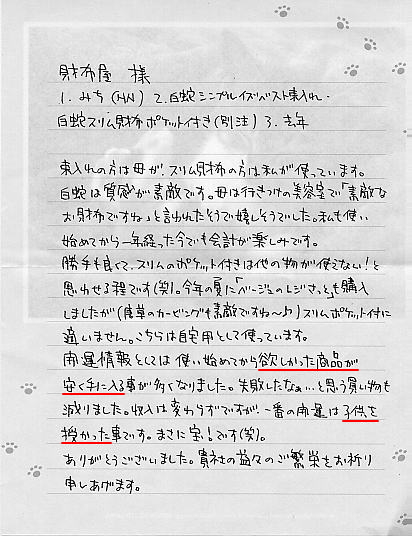 財布屋 様
1. みち(HN) 2. 白蛇シンプルイズベスト束入れ・
白蛇スリム財布ポケット付き(別注) 3. 去年
束入れの方は母が、スリム財布の方は私が使っています。
白蛇は質感が素敵です。母は行きつけの美容室で「素敵な
お財布ですね」と言われたそうで嬉しそうでした。私も使い
始めてから一年経った今でも会計が楽しみです。
勝手も良くて、スリムのポケット付きは他の物が使えない!と
思わせる程です(笑)。今年の夏に「ベージュのレジさっと」も購入
しましたが(唐草のカービングも素敵ですね〜♪)スリムポケット付に
違いません。こちらは自宅用として使っています。
開運情報としては使い始めてから欲しかった商品が
安く手に入る事が多くなりました。失敗したなぁ…と思う買い物も
減りました。収入は変わらずですが、一番の開運は子供を
授かった事です。まさに宝!です(笑)。
ありがとうございました。貴社の益々のご繁栄をお祈り
申しあげます。